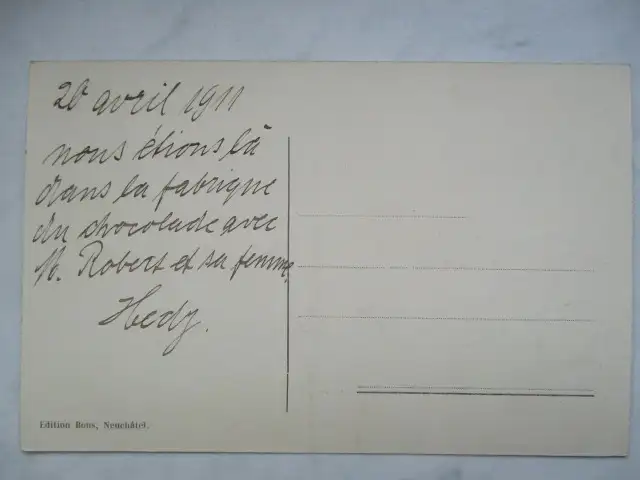 20 avril 1911
nous étions là
dans la fabrique
du chocolade avec
M. Robert et sa femme.
Hedy.
Edition Rons, Neuchâtel.